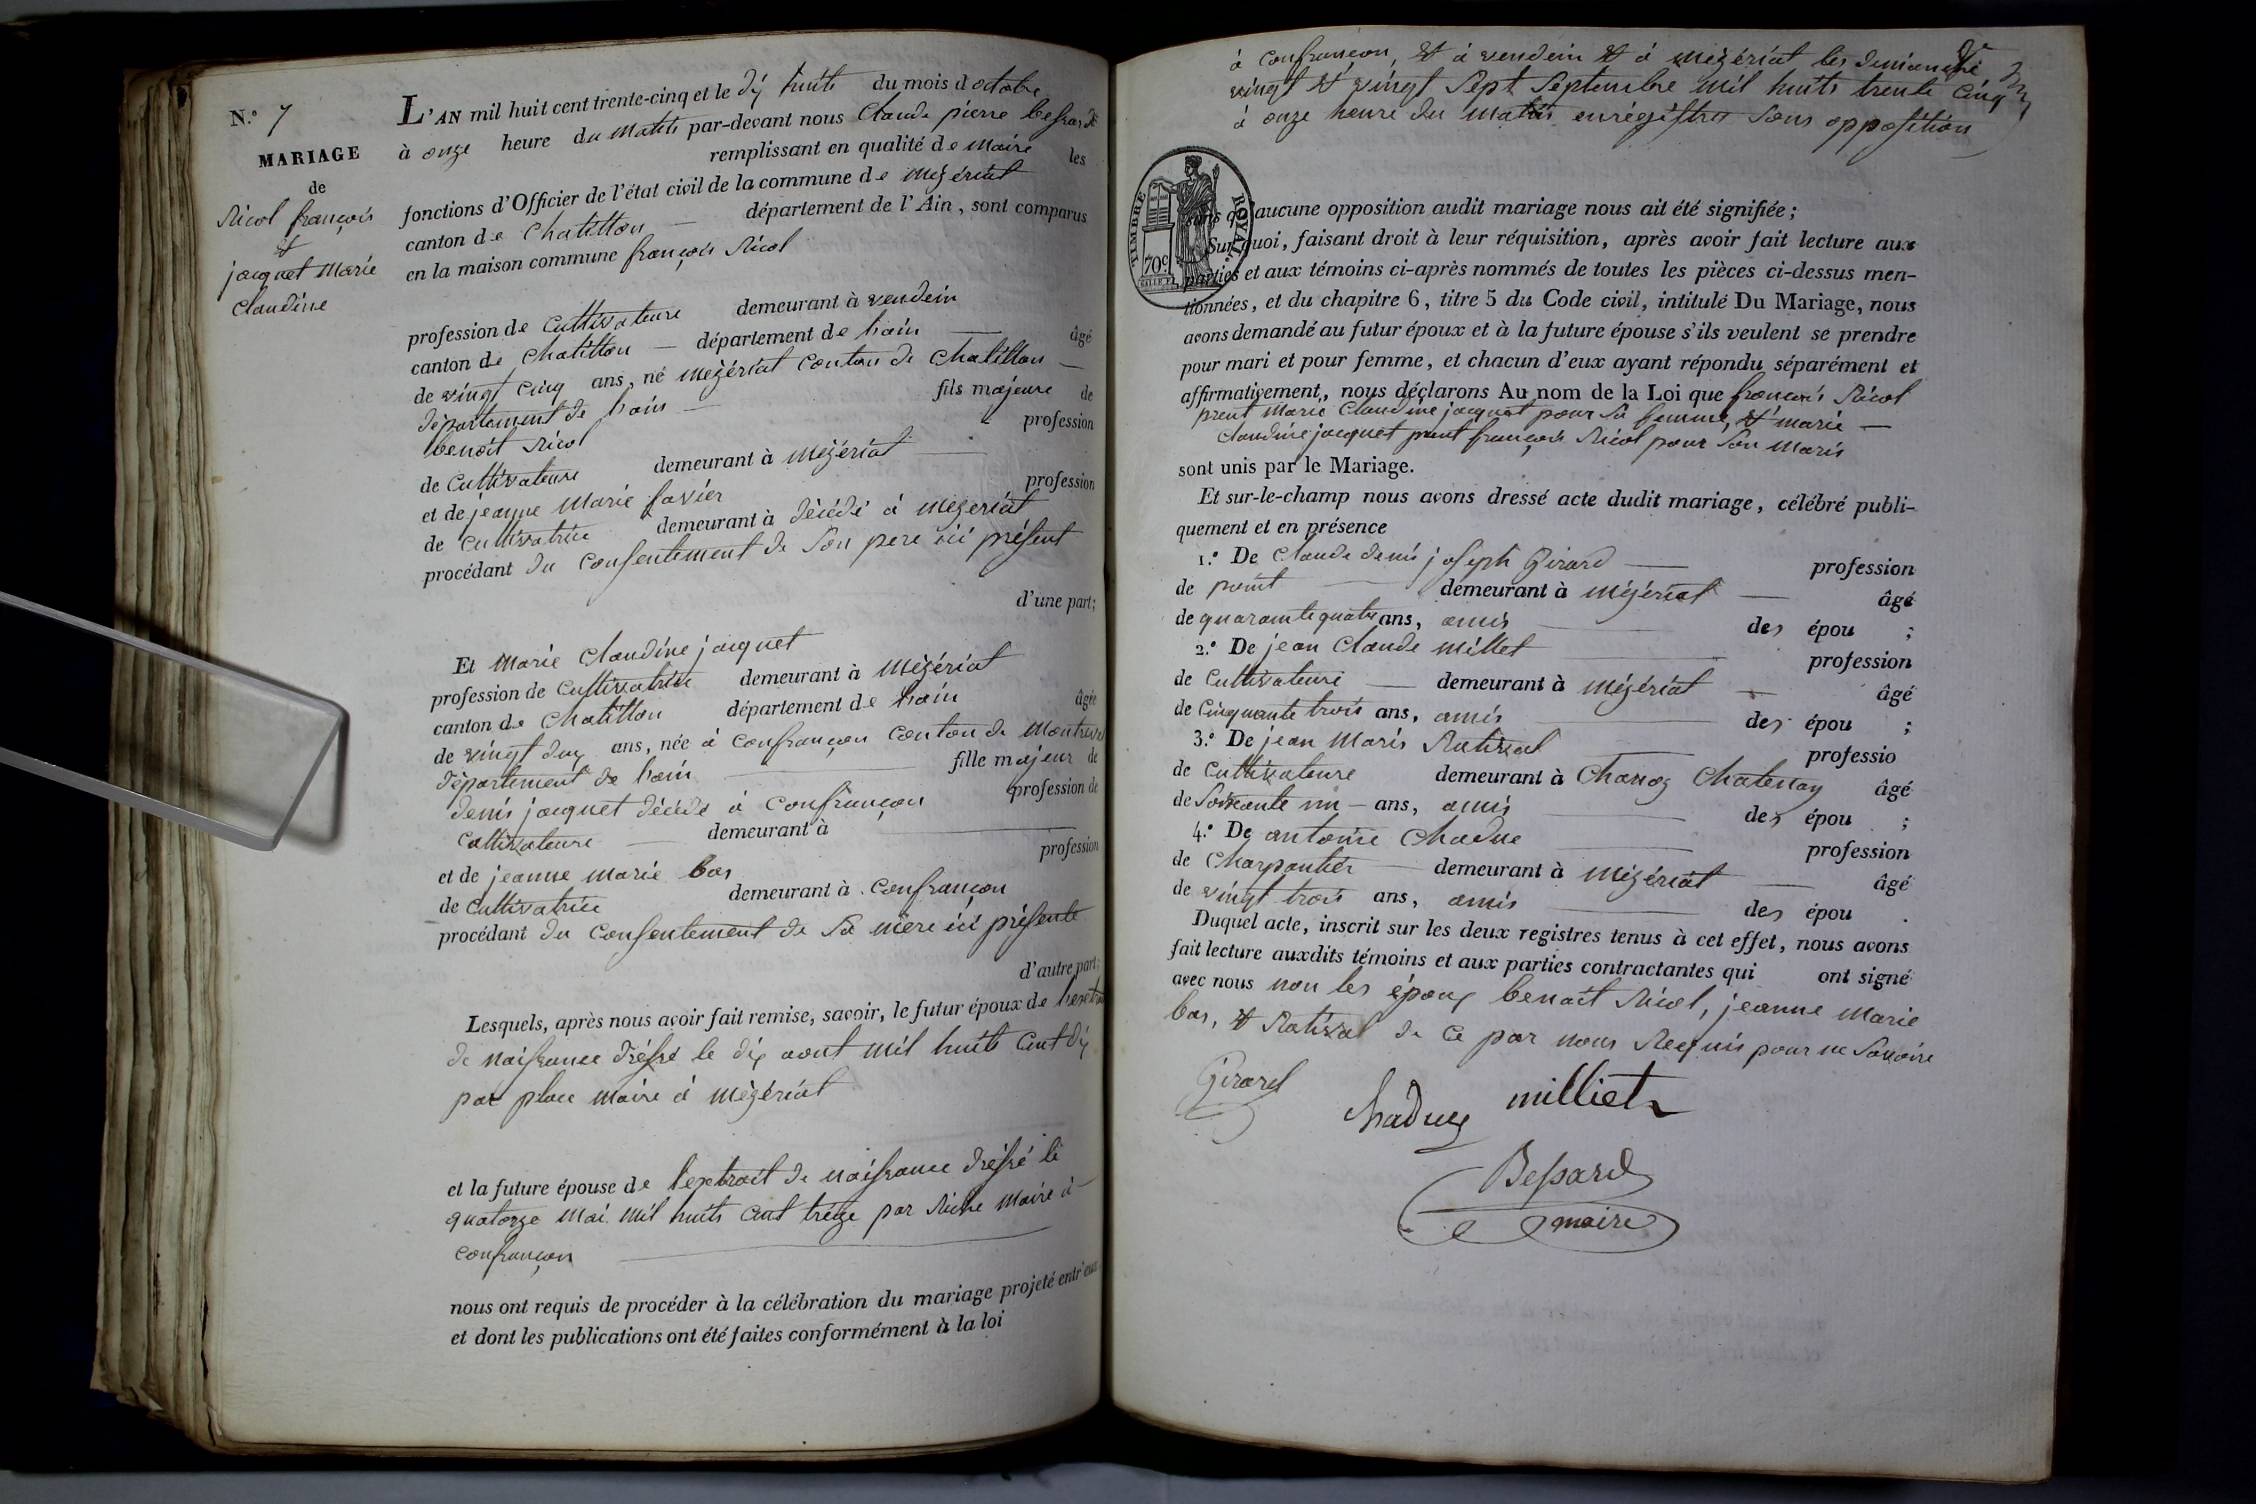 N.° 7
MARIAGE
de
Ricol françois
&
jacquet Marie
Claudine
L'AN mil huit cent trente-cinq et le dix huits du mois d octobre
à onze heure du matin par-devant nous Claude pierre bessard
remplissant en qualité de maire les
fonctions d'Officier de l'état civil de la commune de mézériat
canton de Chatillon département de l'Ain, sont comparus
en la maison commune françois Ricol
profession de Cultivateure demeurant à vendein
canton de Chatillon département de hain âgé
de vingt cinq ans, né mézériat conton de Chatillon
département de hain fils majeure de
benoit Ricol profession
de Cultivateure demeurant à mézériat
et de jeanne Marie favier profession
de Cultivatrice demeurant à décédé à mézériat
procédant du consentement de son pere ici présent
d'une part;
Et Marie Claudine jacquet
profession de Cultivatrice demeurant à mézériat
canton de Chatillon département de hain âgée
de vingt dux ans, née à confrançon conton de Montrevel
département de hain fille majeur de
denis jacquet décédé à confrançon profession de
Cultivateure demeurant à
et de jeanne marie bas profession
de Cultivatrice demeurant à confrançon
procédant du consentement de sa mère ici présente
d'autre part;
Lesquels, après nous avoir fait remise, savoir, le futur époux de lextrait
de naissance dréssé le dix aout mil huits cent dix
par place maire à mézériat
et la future épouse de lextrait de naissance dréssé le
quatorze mai mil huits cent tréze par Riche maire à
confrançon
nous ont requis de procéder à la célébration du mariage projeté entr'eux
et dont les publications ont été faites conformément à la loi
à confrançon, & à vendein & à mézériat les dimanche
vingt & vingt sept septembre mil huits trente cinq
à onze heure du matin enrégistrés sons opposition
TIMBRE ROYAL
70c
sans qu'aucune opposition audit mariage nous ait été signifiée;
Sur quoi, faisant droit à leur réquisition, après avoir fait lecture aux
parties et aux témoins ci-après nommés de toutes les pièces ci-dessus men-
tionnées, et du chapitre 6, titre 5 du Code civil, intitulé Du Mariage, nous
avons demandé au futur époux et à la future épouse s'ils veulent se prendre
pour mari et pour femme, et chacun d'eux ayant répondu séparément et
affirmativement, nous déclarons Au nom de la Loi que francois Ricol
prent Marie Claudine jacquet pour sa femme, & marie
Claudine jacquet prent françois Ricol pour son maris
sont unis par le Mariage.
Et sur-le-champ nous avons dressé acte dudit mariage, célébré publi-
quement et en présence
1.° De Claude denis joseph Girard profession
de point demeurant à mézériat âgé
de quarante quatre ans, amis des épou ;
2.° De jean Claude millet profession
de Cultivateure demeurant à mézériat âgé
de Cinquante trois ans, amis des épou ;
3.° De jean Maris Rativat professio
de Cultivateure demeurant à Chanoz Chatenay âgé
de Soixante un ans, amis des épou ;
4.° De antoine Chadue profession
de Charpantier demeurant à mézériat âgé
de vingt trois ans, amis des épou .
Duquel acte, inscrit sur les deux registres tenus à cet effet, nous avons
fait lecture auxdits témoins et aux parties contractantes qui ont signé
avec nous non les époux benoit Ricol, jeanne Marie
bas, & Rativat de ce par nous Requis pour ne savoire
Girard
Chadux milliet
Bessard
maire